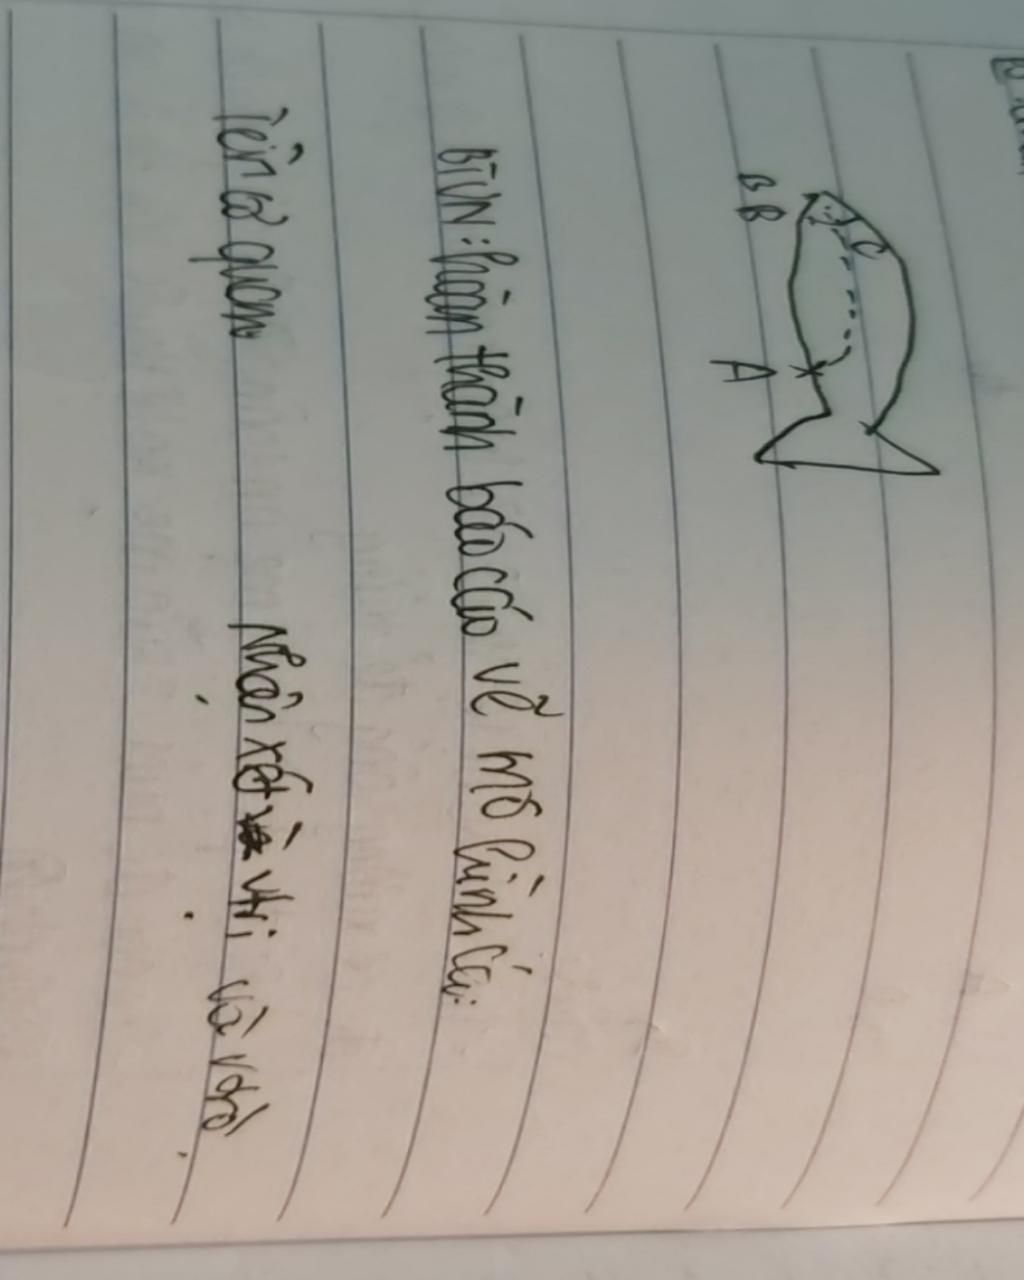 B B
C
A
BTVN: hoàn thành báo cáo về mổ hình cá:
Tên cơ quan Nhận xét vtrí và vtrò